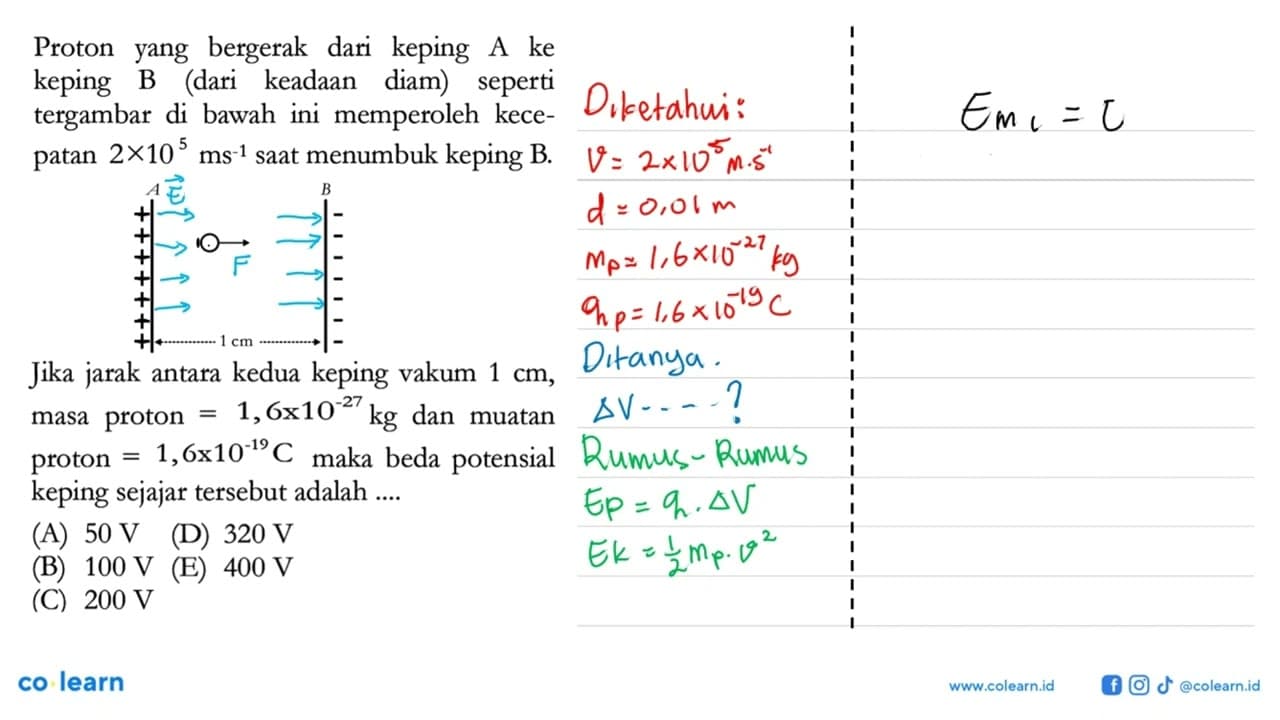 Proton yang bergerak dari keping A ke
keping B (dari keadaan diam) seperti
tergambar di bawah ini memperoleh kece-
patan 2×10⁵ ms⁻¹ saat menumbuk keping B.
A E⃗ B
F
1 cm
Jika jarak antara kedua keping vakum 1 cm,
masa proton = 1,6x10⁻²⁷ kg dan muatan
proton = 1,6x10⁻¹⁹ C maka beda potensial
keping sejajar tersebut adalah ....
(A) 50 V (D) 320 V
(B) 100 V (E) 400 V
(C) 200 V
Diketahui:
v = 2×10⁵ m.s⁻¹
d = 0,01 m
mp = 1,6×10⁻²⁷ kg
qp = 1,6×10⁻¹⁹ C
Ditanya.
ΔV ----?
Rumus-Rumus
Ep = q.ΔV
Ek = ½ mp.v²
Em₁ =
co learn
www.colearn.id
@colearn.id